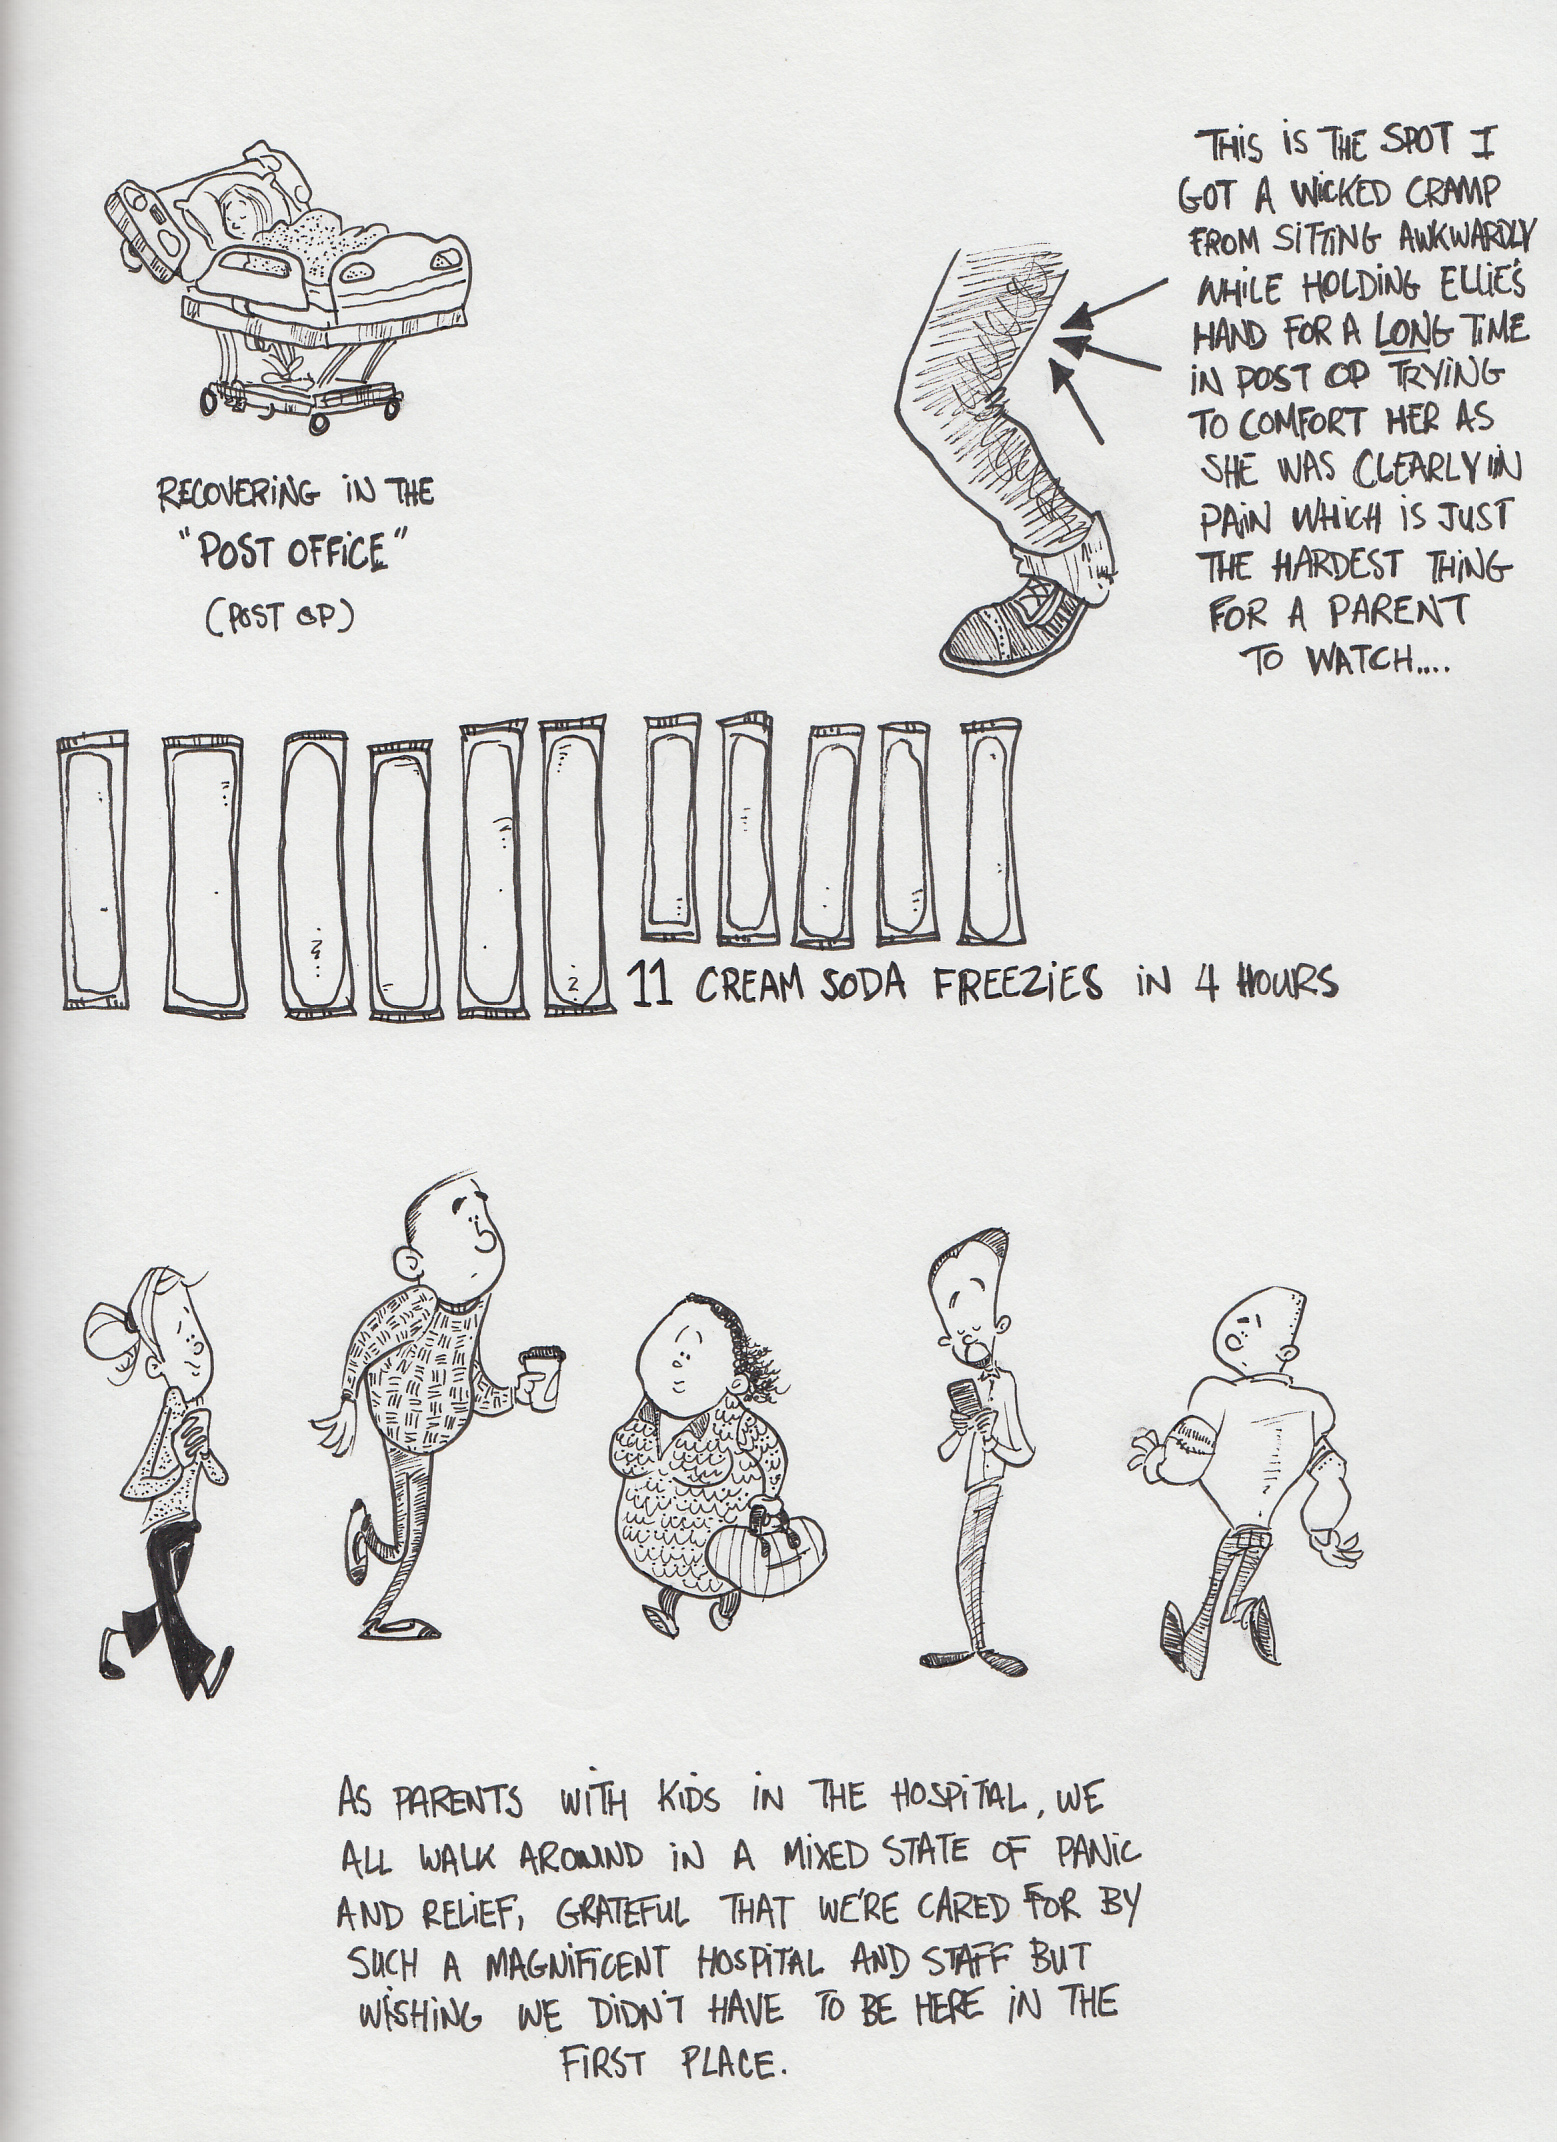 RECOVERING IN THE
"POST OFFICE"
(POST OP)
THIS IS THE SPOT I
GOT A WICKED CRAMP
FROM SITTING AWKWARDLY
WHILE HOLDING ELLIE'S
HAND FOR A LONG TIME
IN POST OP TRYING
TO COMFORT HER AS
SHE WAS CLEARLY IN
PAIN WHICH IS JUST
THE HARDEST THING
FOR A PARENT
TO WATCH....
11 CREAM SODA FREEZIES IN 4 HOURS
AS PARENTS WITH KIDS IN THE HOSPITAL, WE
ALL WALK AROUND IN A MIXED STATE OF PANIC
AND RELIEF, GRATEFUL THAT WE'RE CARED FOR BY
SUCH A MAGNIFICENT HOSPITAL AND STAFF BUT
WISHING WE DIDN'T HAVE TO BE HERE IN THE
FIRST PLACE.